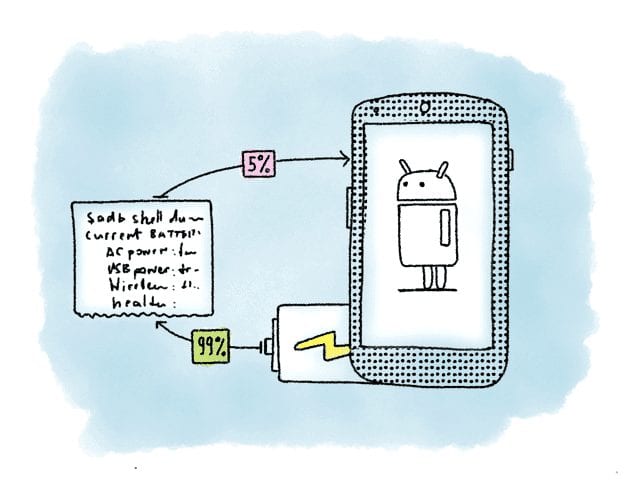 5%
$adb shell du
Current BATTERY
AC power:
USB power: tr
Wireless:
health:
99%